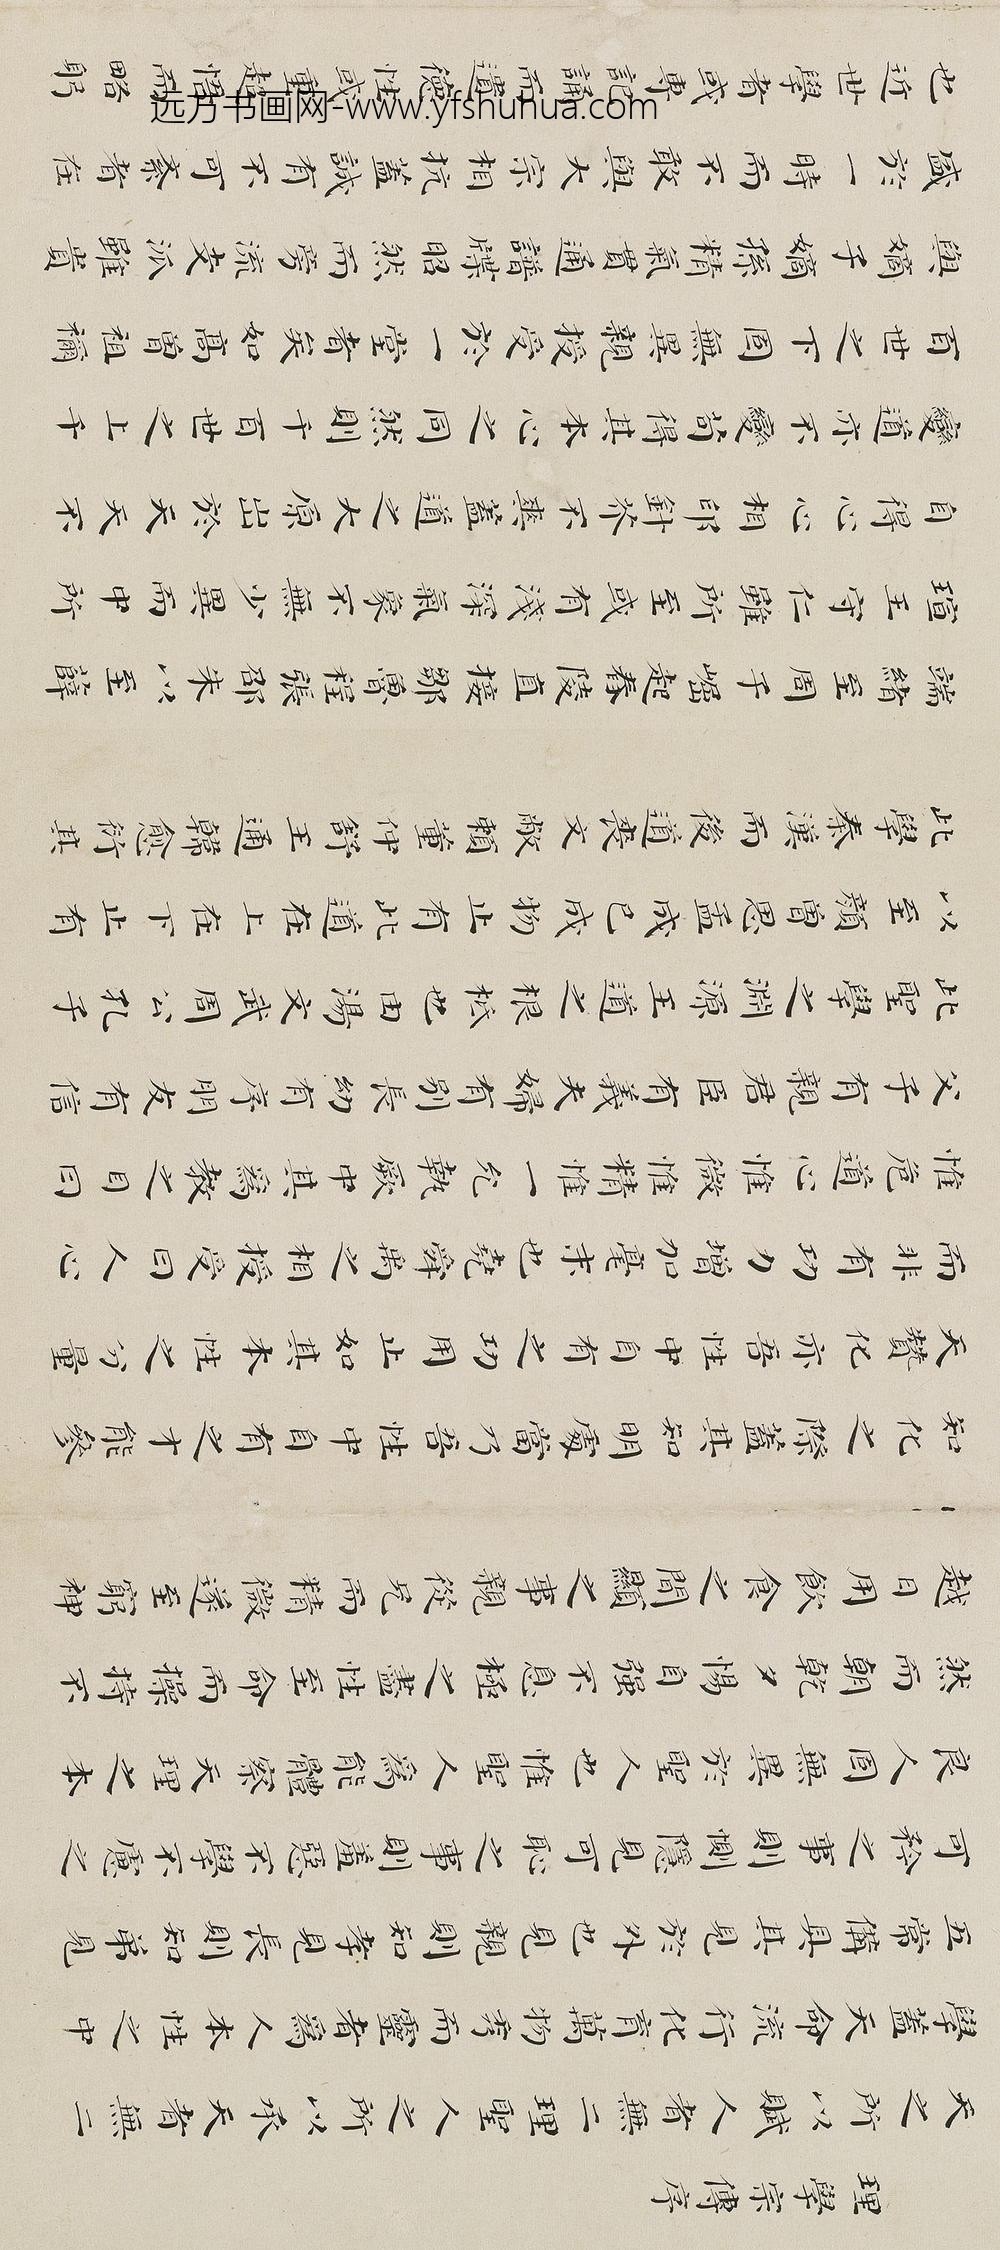 理學宗傳序
天之所以賦人者無二理聖人之所以承天者無二
學蓋天命流行化育萬物秀而靈者爲人本性之中
五常備具其見於外也見親則知孝見長則知弟見
可矜之事則惻隱見可恥之事則羞惡不學不慮之
良人固無異於聖人也惟聖人爲能體察天理之本
然而朝乾夕惕自强不息極之盡性至命而操持不
越日用飲食之間顯之事親從兄而精微遂至窮神
知化之際蓋其知明處當乃吾性中自有之才能參
天贊化亦吾性中自有之功用止如其本性之分量
而非有功力增加毫末也堯舜禹之相授受曰人心
惟危道心惟微惟精惟一允執厥中其爲教之目曰
父子有親君臣有義夫婦有別長幼有序朋友有信
此聖學之淵源王道之根柢也由湯文武周公孔子
以至顏曾思孟成己成物止有此道在上在下止有
此學秦漢而後道喪文敝賴董仲舒王通韓愈衍其
端緒至周子崛起舂陵直接鄒魯程張邵朱以至薛
瑄王守仁雖所至或有淺深氣象不無少異而中所
自得心心相印針芥不乖蓋道之大原出於天天不
變道亦不變苟得其本心之同然則千百世之上千
百世之下固無異親授受於一堂者矣如高曾祖禰
與嫡子嫡孫精氣貫通譜牒昭然而旁流支派雖貴
盛於一時而不敢與大宗相抗蓋誠有不可紊者在
也近世學者或專記誦而遺德性或重超悟而略躬
远方书画网-www.yfshuhua.com